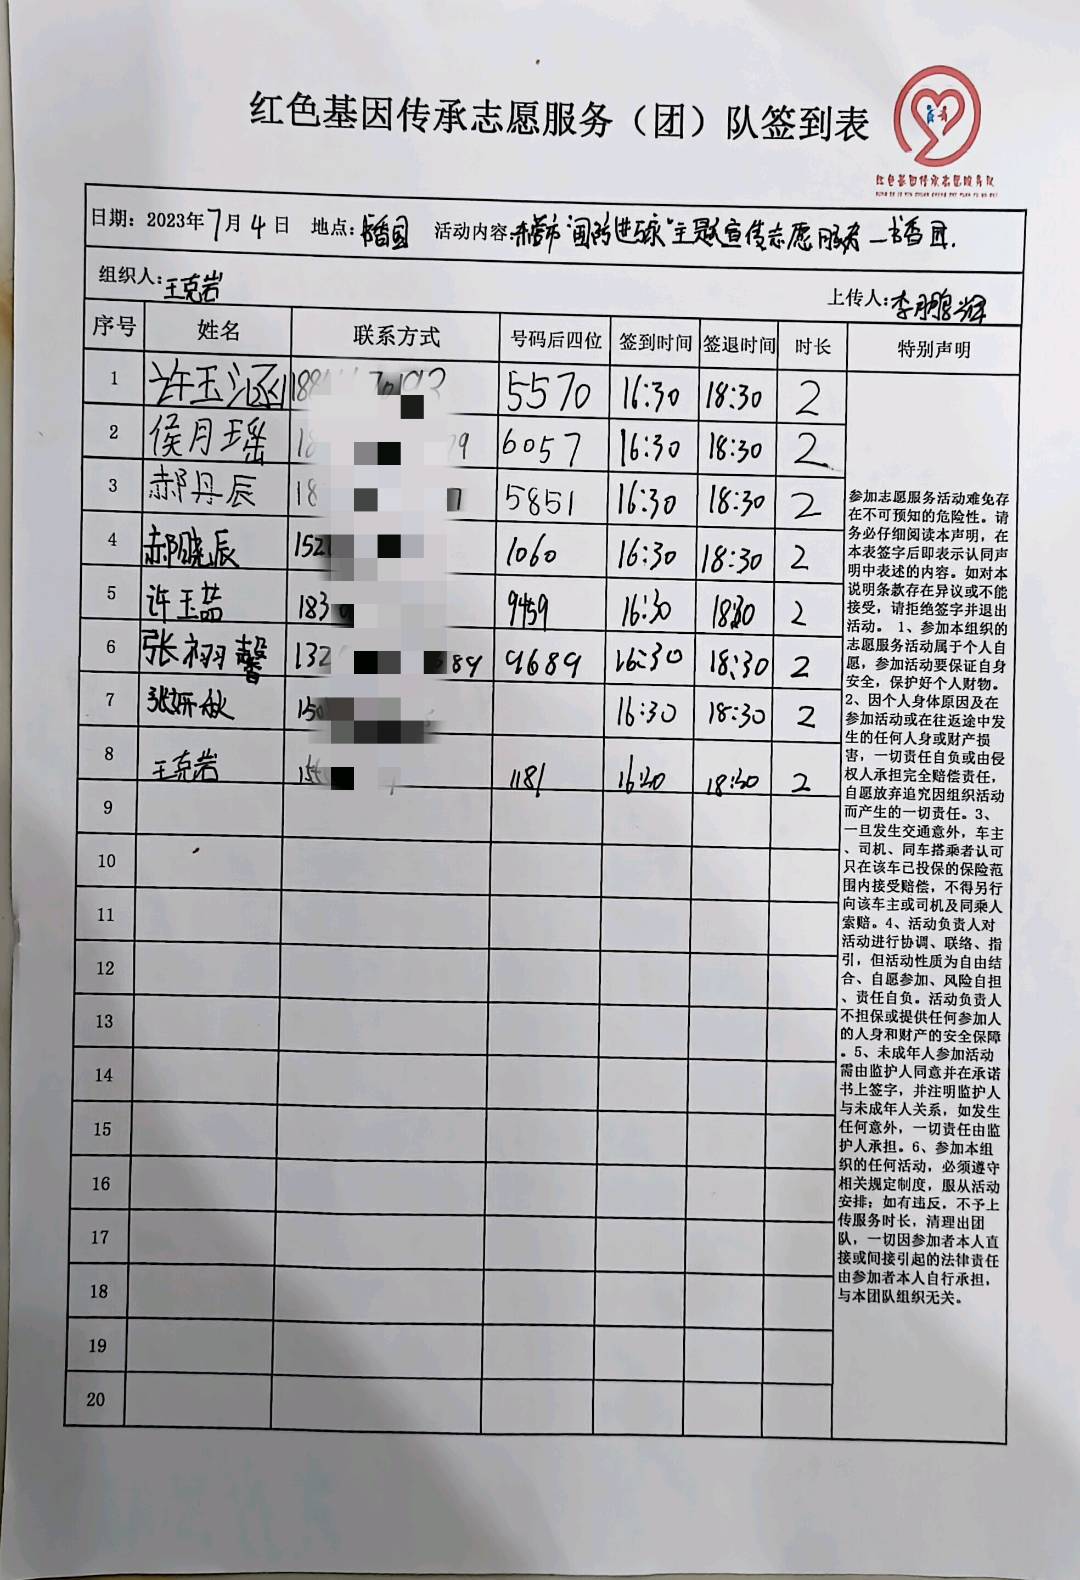 红色基因传承志愿服务（团）队签到表
红色基因传承志愿服务队
日期：2023年7月4日 地点：书香园 活动内容：主题宣传志愿服务—书香园.
组织人：王克岩 上传人：李鹏辉
序号 姓名 联系方式 号码后四位 签到时间 签退时间 时长 特别声明
1 许玉涵 5570 16:30 18:30 2
2 侯月瑶 6057 16:30 18:30 2
3 郝丹辰 5851 16:30 18:30 2
4 郝晓辰 1060 16:30 18:30 2
5 许玉茹 9459 16:30 18:30 2
6 张栩馨 9689 16:30 18:30 2
7 张妍秋 16:30 18:30 2
8 王克岩 1181 16:30 18:30 2
9
10
11
12
13
14
15
16
17
18
19
20
参加志愿服务活动难免存
在不可预知的危险性。请
务必仔细阅读本声明，在
本表签字后即表示认同声
明中表述的内容。如对本
说明条款存在异议或不能
接受，请拒绝签字并退出
活动。 1、参加本组织的
志愿服务活动属于个人自
愿，参加活动要保证自身
安全，保护好个人财物。
2、因个人身体原因及在
参加活动或在往返途中发
生的任何人身或财产损
害，一切责任自负或由侵
权人承担完全赔偿责任，
自愿放弃追究因组织活动
而产生的一切责任。3、
一旦发生交通意外，车主
、司机、同车搭乘者认可
只在该车已投保的保险范
围内接受赔偿，不得另行
向该车主或司机及同乘人
索赔。4、活动负责人对
活动进行协调、联络、指
引，但活动性质为自由结
合、自愿参加、风险自担
、责任自负。活动负责人
不担保或提供任何参加人
的人身和财产的安全保障
。5、未成年人参加活动
需由监护人同意并在承诺
书上签字，并注明监护人
与未成年人关系，如发生
任何意外，一切责任由监
护人承担。6、参加本组
织的任何活动，必须遵守
相关规定制度，服从活动
安排；如有违反，不予上
传服务时长，清理出团
队，一切因参加者本人直
接或间接引起的法律责任
由参加者本人自行承担，
与本团队组织无关。